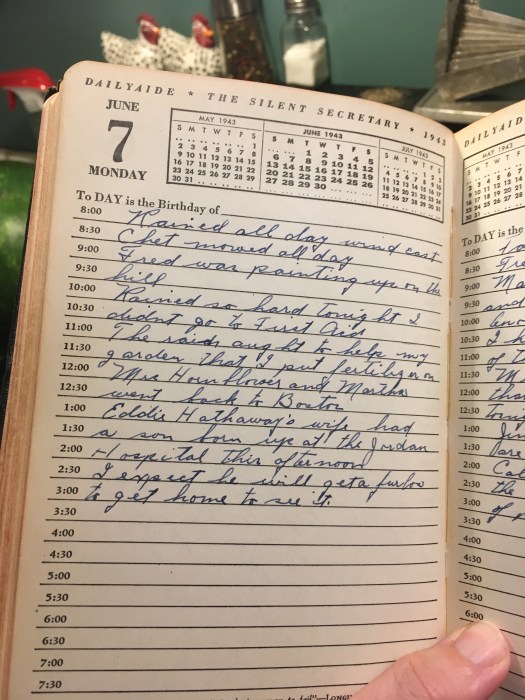 DAILYAIDE * THE SILENT SECRETARY * 1943
JUNE
7
MONDAY
MAY 1943
S M T W T F S
1
2 3 4 5 6 7 8
9 10 11 12 13 14 15
16 17 18 19 20 21 22
23 24 25 26 27 28 29
30 31
JUNE 1943
S M T W T F S
1 2 3 4 5
6 7 8 9 10 11 12
13 14 15 16 17 18 19
20 21 22 23 24 25 26
27 28 29 30
JULY 1943
S M T W T F S
1 2 3
4 5 6 7 8 9 10
11 12 13 14 15 16 17
18 19 20 21 22 23 24
25 26 27 28 29 30 31
To DAY is the Birthday of
8:00 Rained all day wind east
8:30 Chet mowed all day
9:00 Fred was painting up on the
9:30 hill
10:00 Rained so hard tonight I
10:30 didnt go to First Aid
11:00 The rain aught to help my
11:30 garden that I put fertilizer on
12:00 Mrs Hornflower and Martha
12:30 went back to Boston
1:00 Eddie Hathaway's wife had
1:30 a son born up at the Jordan
2:00 Hospital this afternoon
2:30 I expect he will get a furlo
3:00 to get home to see it.
3:30
4:00
4:30
5:00
5:30
6:00
6:30
7:00
7:30
DAILYAID
MAY 1943
To DAY is the
8:00
8:30
9:00
9:30 and
10:00
10:30
11:00
11:30
12:00
12:30
1:00
1:30
2:00
2:30 the
3:00
3:30
4:00
4:30
5:00
5:30
6:00